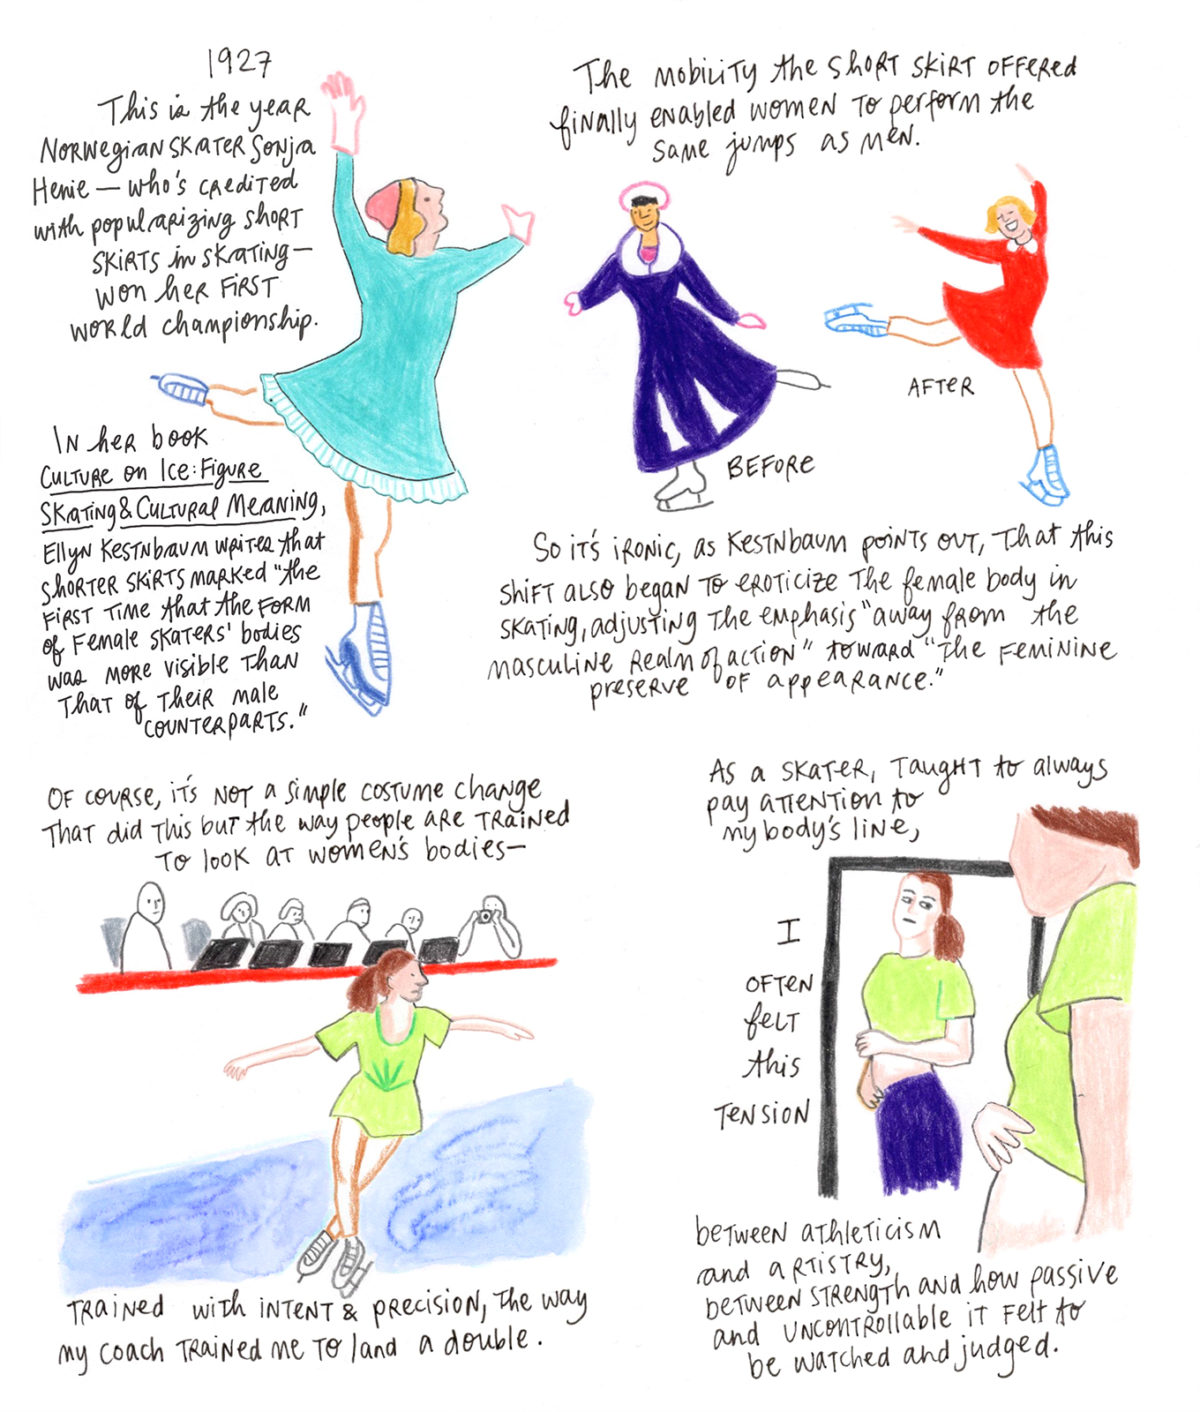 1927
This is the year
Norwegian skater Sonja
Henie — who's credited
with popularizing short
skirts in skating —
won her first
world championship.
In her book
Culture on Ice: Figure
Skating & Cultural Meaning,
Ellyn Kestnbaum writes that
shorter skirts marked "the
first time that the form
of female skaters' bodies
was more visible than
that of their male
counterparts."
The mobility the short skirt offered
finally enabled women to perform the
same jumps as men.
BEFORE
AFTER
So it's ironic, as Kestnbaum points out, that this
shift also began to eroticize the female body in
skating, adjusting the emphasis "away from the
masculine realm of action" toward "the feminine
preserve of appearance."
Of course, it's not a simple costume change
that did this but the way people are trained
to look at women's bodies —
Trained with intent & precision, the way
my coach trained me to land a double.
As a skater, taught to always
pay attention to
my body's line,
I
often
felt
this
tension
between athleticism
and artistry,
between strength and how passive
and uncontrollable it felt to
be watched and judged.